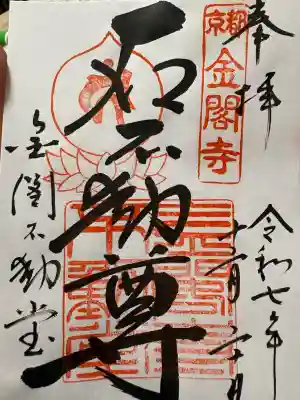 奉拝
京都
金閣寺
令和七年
十一月二十日
石不動尊
金閣不動堂